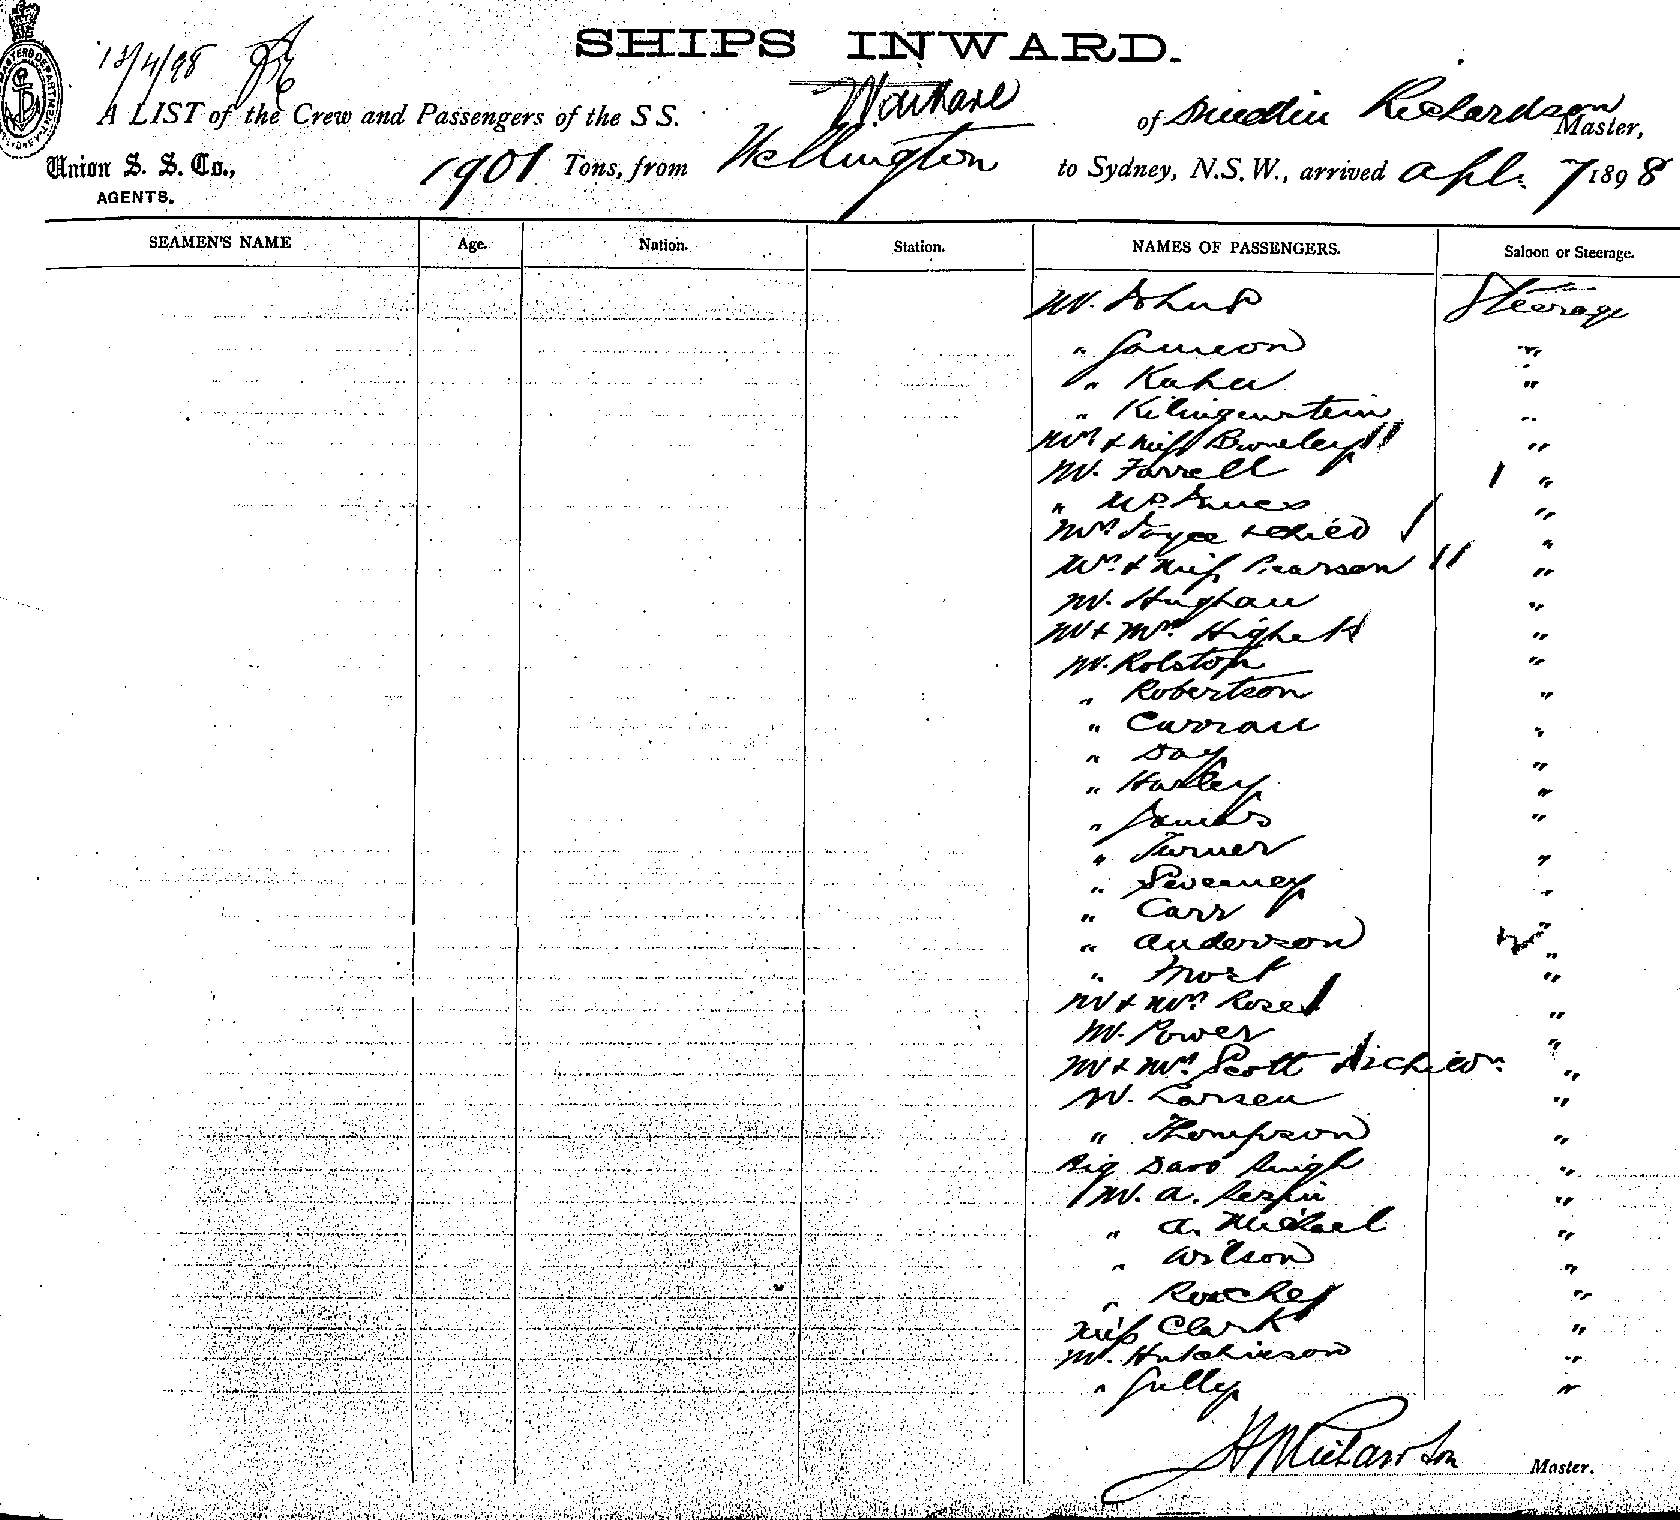 SHIPS INWARD.
13/4/98
A LIST of the Crew and Passengers of the S S. of Dunedin Richardson Master,
Union S. S. Co., 1901 Tons, from Wellington to Sydney, N.S.W., arrived Apl. 7 1898
AGENTS.
SEAMEN'S NAME Age. Nation. Station. NAMES OF PASSENGERS. Saloon or Steerage.
Mr. Johns Steerage
" "
" "
" Kilingenstein "
Mrs & Miss "
Mr. Farrell "
" McInnes "
Mrs Joyce & child "
Mrs & Miss Pearson "
Mr. Hughan "
Mr & Mrs Highett "
Mr. Rolston "
" Robertson "
" Curran "
" Day "
" Hurley "
" "
" Turner "
" Sweeney "
" Carr "
" Anderson "
" Mort "
Mr & Mrs Rose "
Mr. Power "
Mr & Mrs Scott "
Mr. Larsen "
" Thompson "
Singh "
Mr. A. "
" A. Michael "
" Wilson "
" Roache "
Miss Clark "
Mr. Hutchinson "
" Gully "
Richardson Master.